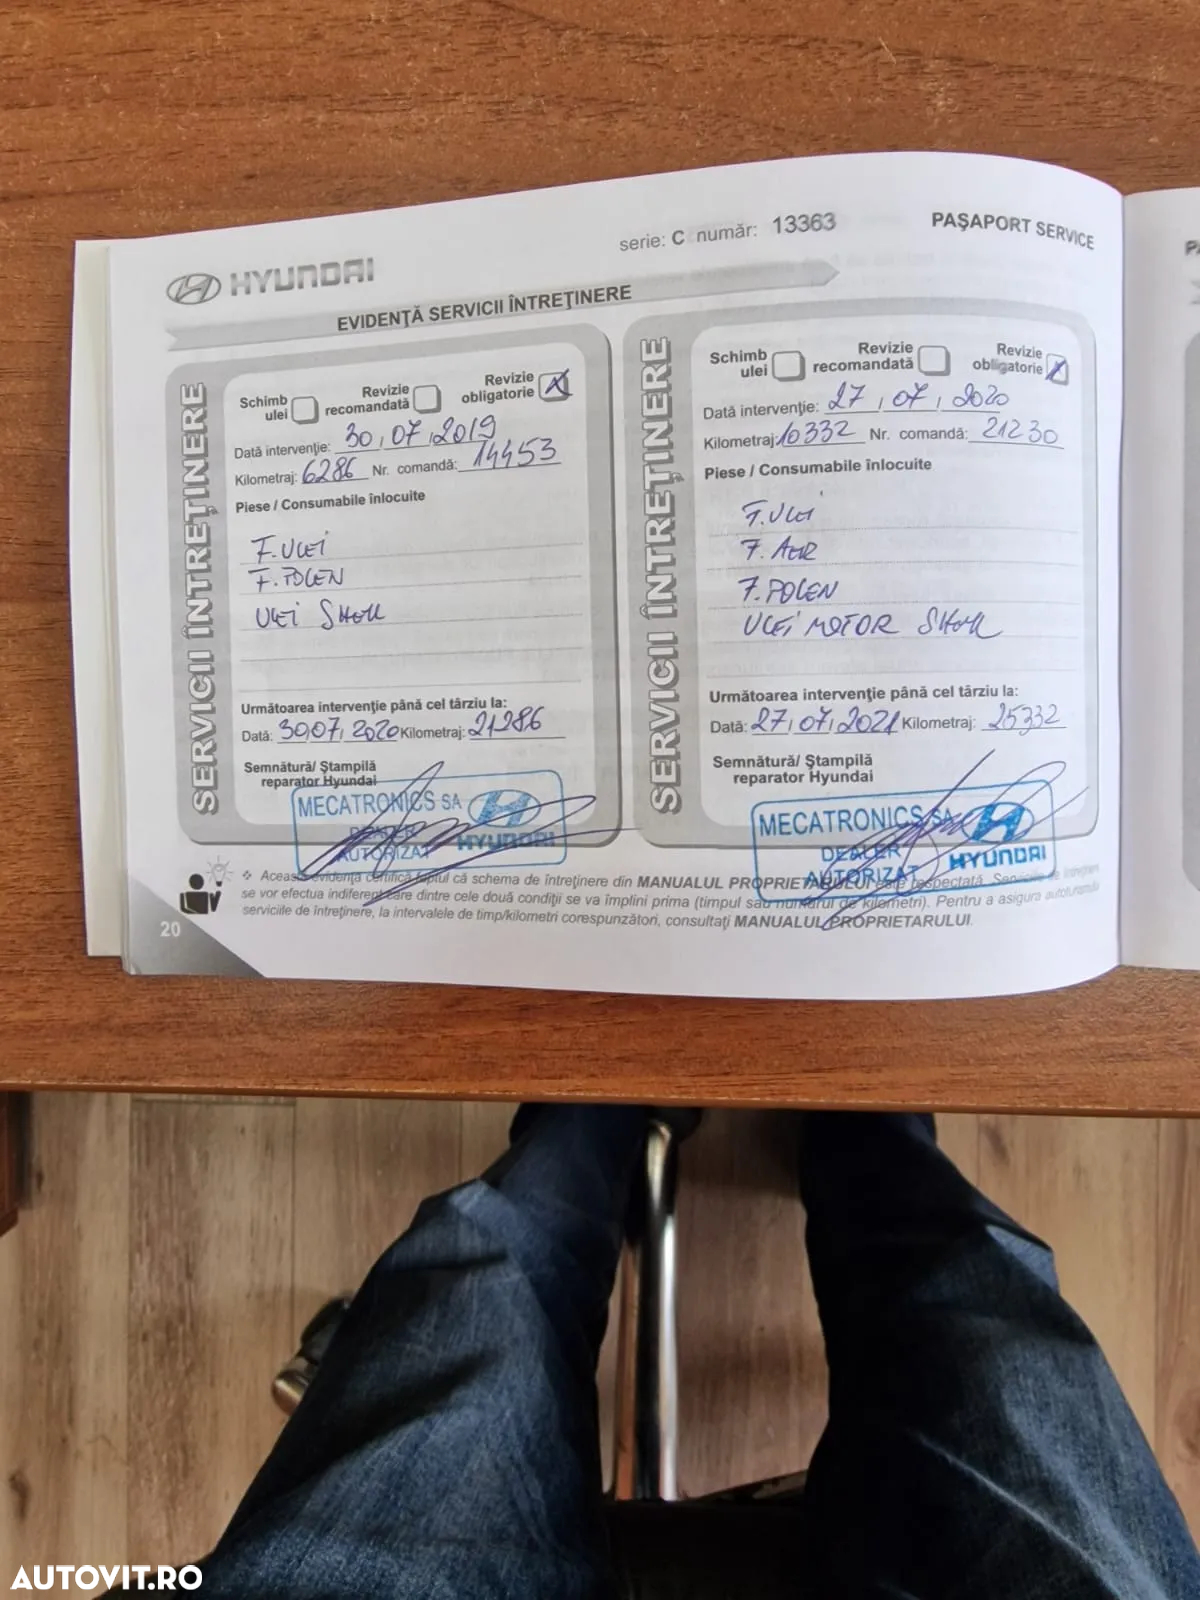 serie: C număr: 13363
PAŞAPORT SERVICE
HYUNDAI
EVIDENŢĂ SERVICII ÎNTREŢINERE
SERVICII ÎNTREŢINERE
Schimb ulei
Revizie recomandată
Revizie obligatorie X
Dată intervenţie: 30, 07, 2019
Kilometraj: 6286 Nr. comandă: 14453
Piese / Consumabile înlocuite
F. ULEI
F. POLEN
ULEI SHELL
Următoarea intervenţie până cel târziu la:
Dată: 30,07, 2020 Kilometraj: 21286
Semnătură/ Ştampilă
reparator Hyundai
MECATRONICS SA
DEALER
AUTORIZAT
HYUNDAI
SERVICII ÎNTREŢINERE
Schimb ulei
Revizie recomandată
Revizie obligatorie X
Dată intervenţie: 27, 07, 2020
Kilometraj: 10332 Nr. comandă: 21230
Piese / Consumabile înlocuite
F. ULEI
F. AER
F. POLEN
ULEI MOTOR SHELL
Următoarea intervenţie până cel târziu la:
Dată: 27, 07, 2021 Kilometraj: 25332
Semnătură/ Ştampilă
reparator Hyundai
MECATRONICS SA
DEALER
AUTORIZAT
HYUNDAI
❖ Această evidenţa certifică faptul că schema de întreţinere din MANUALUL PROPRIETARULUI este respectată. Serviciile de întreţinere
se vor efectua indiferent care dintre cele două condiţii se va împlini prima (timpul sau numărul de kilometri). Pentru a asigura autoturismului
serviciile de întreţinere, la intervalele de timp/kilometri corespunzători, consultaţi MANUALUL PROPRIETARULUI.
20
AUTOVIT.RO